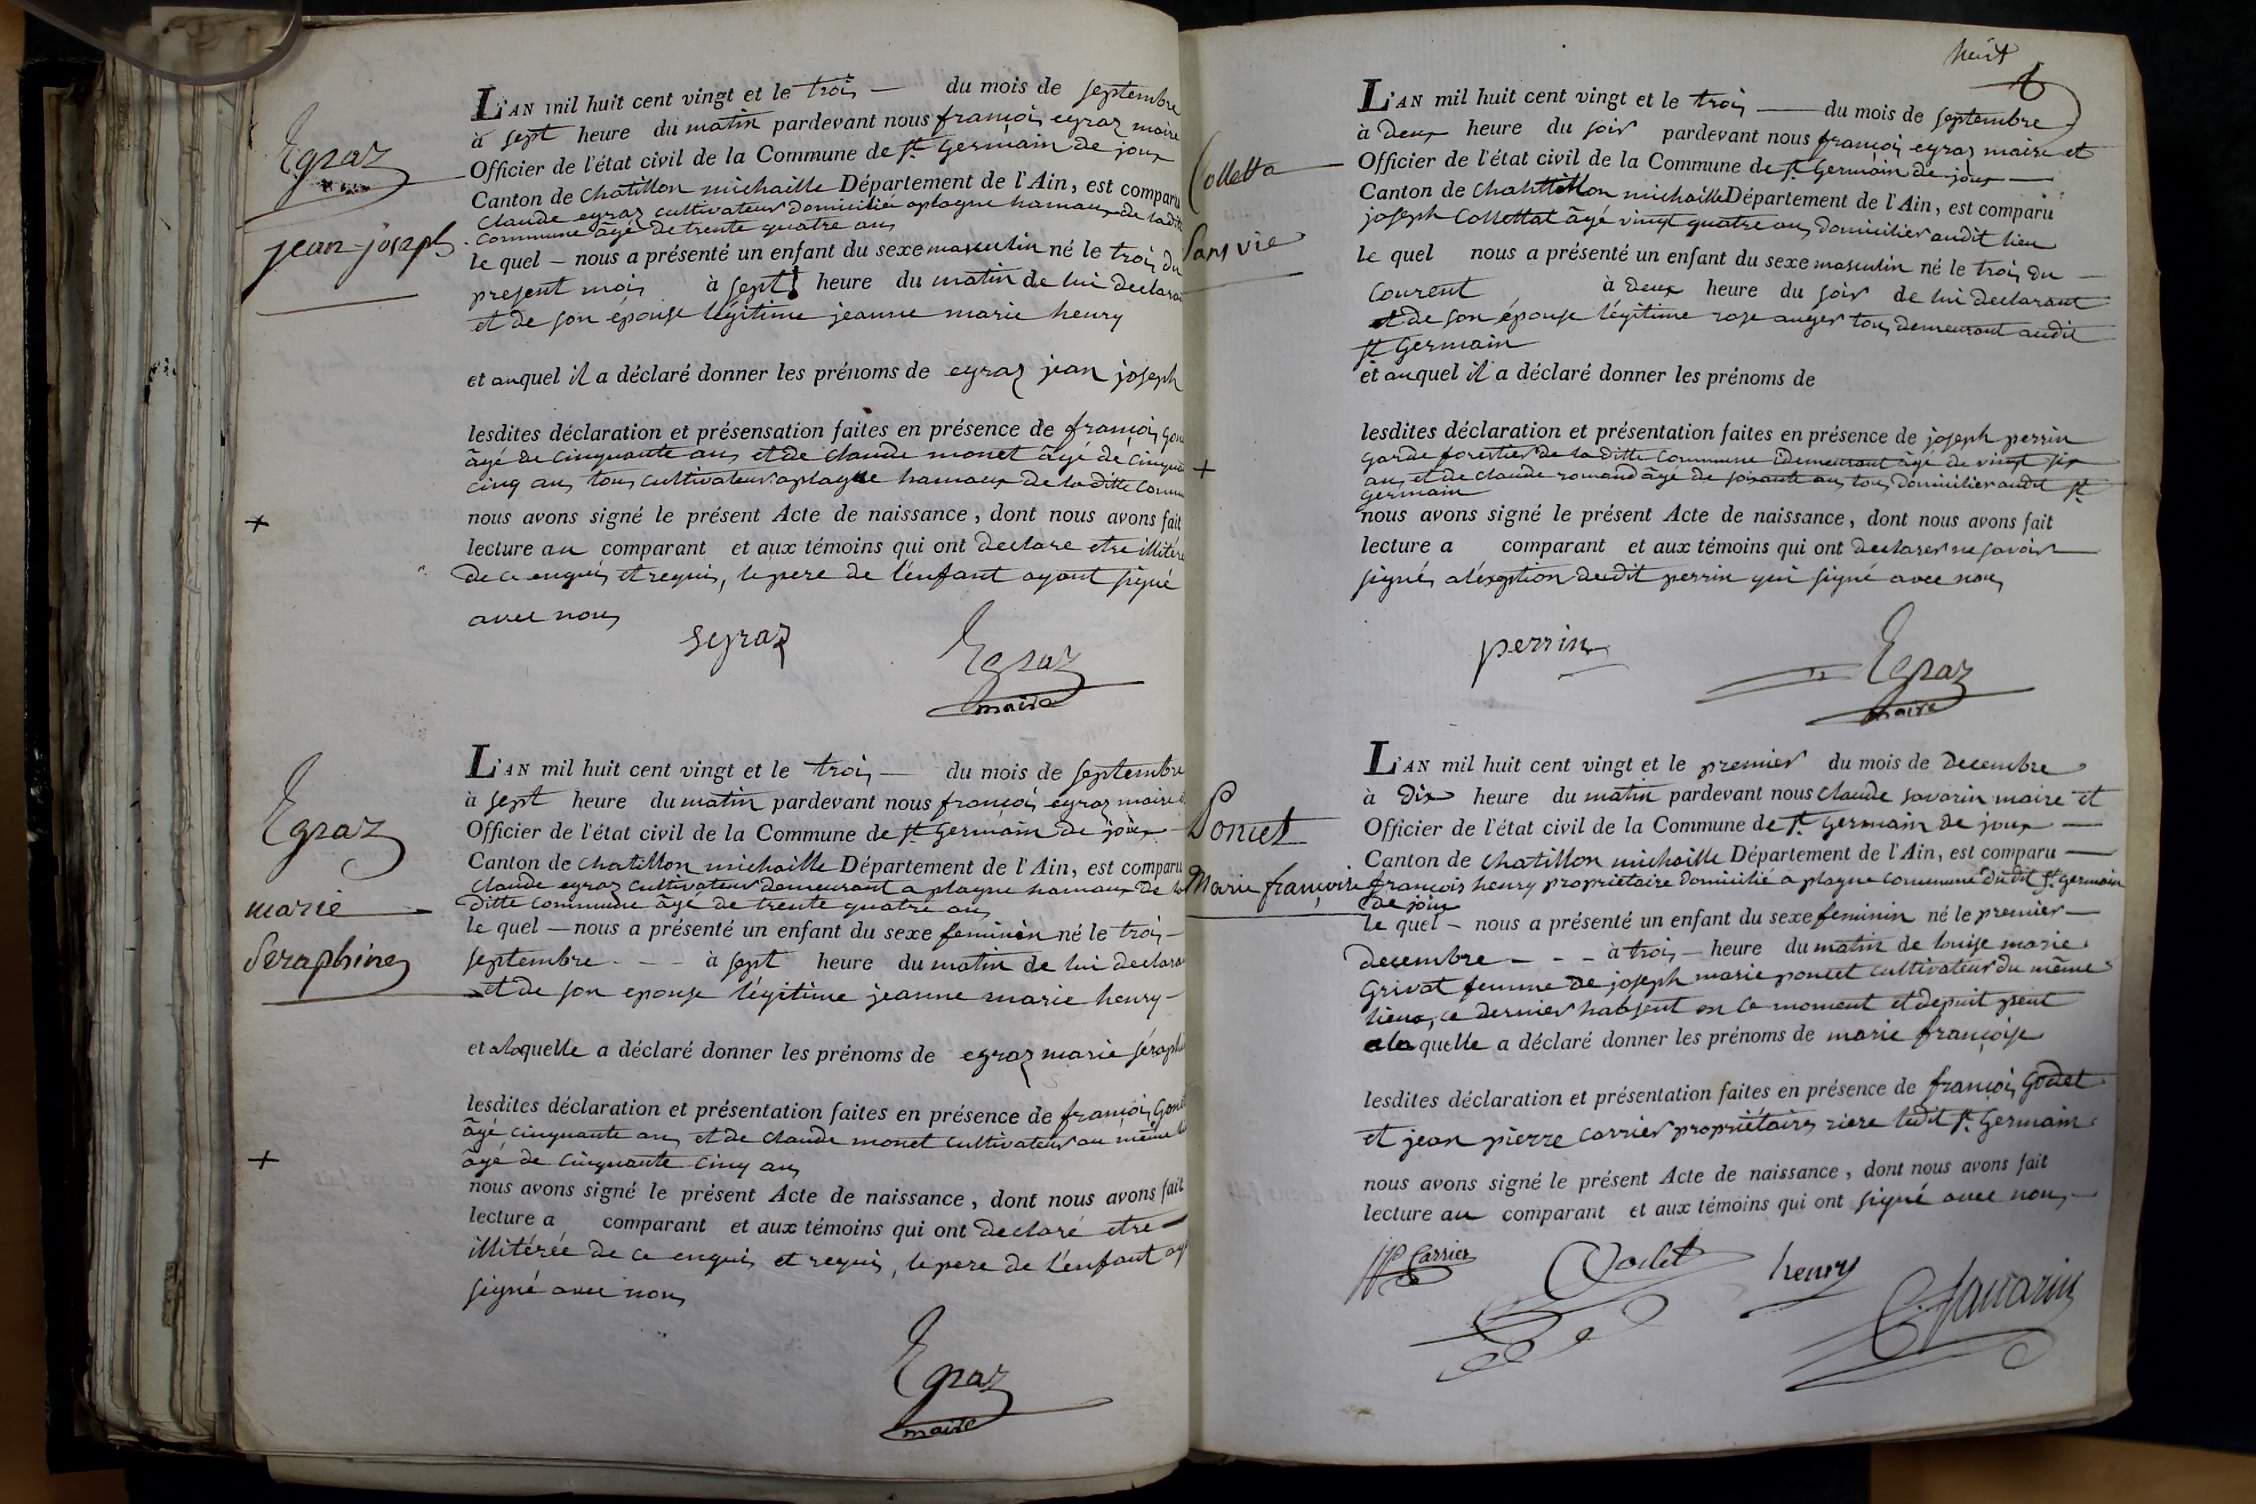 Egraz
jean-joseph
L'AN mil huit cent vingt et le trois — du mois de septembre
à sept heure du matin pardevant nous françois egraz maire
Officier de l'état civil de la Commune de St Germain de joux
Canton de Chatillon michaille Département de l'Ain, est comparu
Claude egraz cultivateur domicilié aplagne hamaux de ladit
Commune âgé de trente quatre ans
le quel — nous a présenté un enfant du sexe masculin né le trois du
present mois à sept heure du matin de lui declara
et de son épouse légitime jeanne marie henry
et auquel il a déclaré donner les prénoms de egraz jean joseph
lesdites déclaration et présensation faites en présence de françois
âgé de cinquante ans et de claude monet âgé de cinqua
cinq ans tous cultivateur aplagne hamaux de la ditte Commu
nous avons signé le présent Acte de naissance, dont nous avons fait
lecture au comparant et aux témoins qui ont declare etre illitéré
de ce enquis et requis, le pere de l'enfant ayant signé
avec nous
segraz
Egraz
maire
Egraz
marie
Seraphine
L'AN mil huit cent vingt et le trois — du mois de septembre
à sept heure du matin pardevant nous françois egraz maire
Officier de l'état civil de la Commune de St Germain de joux
Canton de chatillon michaille Département de l'Ain, est comparu
Claude egraz cultivateur demeurant a plagne hamaux de la
ditte commune âgé de trente quatre ans
le quel — nous a présenté un enfant du sexe feminin né le trois —
septembre - - - à sept heure du matin de lui declara
et de son epouse légitime jeanne marie henry —
et a laquelle a déclaré donner les prénoms de egraz marie séraph
lesdites déclaration et présentation faites en présence de françois
âgé cinquante ans et de claude monet cultivateur au même
âgé de cinquante cinq ans
nous avons signé le présent Acte de naissance, dont nous avons fait
lecture a comparant et aux témoins qui ont declaré etre
illitérée de ce enquis et requis, le pere de l'enfant
signé avec nous
Egraz
maire
huit
Colletta
Sans vie
L'AN mil huit cent vingt et le trois — du mois de septembre
à deux heure du soir pardevant nous françois egraz maire et
Officier de l'état civil de la Commune de St Germain de joux —
Canton de chattillon michaille Département de l'Ain, est comparu
joseph Collettat âgé vingt quatre ans domicilier audit lieu
le quel nous a présenté un enfant du sexe masculin né le trois du —
Courent à deux heure du soir de lui declarant
et de son épouse légitime rose auger tous demeurant audit
St Germain
et auquel il a déclaré donner les prénoms de
lesdites déclaration et présentation faites en présence de joseph perrin
garde forestier de la ditte Commune demeurant âgé de vingt six
ans et de claude romand âgé de soixante ans tous domicilier audit St
germain
nous avons signé le présent Acte de naissance, dont nous avons fait
lecture a comparant et aux témoins qui ont declarer ne savoir
signés a l'éxeption dudit perrin qui signé avec nous
perrin
Egraz
maire
Poncet
Marie françoise
L'AN mil huit cent vingt et le premier du mois de decembre
à dix heure du matin pardevant nous claude savarin maire et
Officier de l'état civil de la Commune de St germain de joux —
Canton de chatillon michaille Département de l'Ain, est comparu —
françois henry propriétaire domicilié a plagne commune du dit St germain
de joux
le quel — nous a présenté un enfant du sexe féminin né le premier —
decembre - - - à trois — heure du matin de louise marie
Grivat femme de joseph marie poncet cultivateur du même
lieux, ce dernier habsent en ce moment et depuit peut
a la quelle a déclaré donner les prénoms de marie françoise
lesdites déclaration et présentation faites en présence de françois Godet
et jean pierre carrier propriétaires riere ledit St Germain
nous avons signé le présent Acte de naissance, dont nous avons fait
lecture au comparant et aux témoins qui ont signé avec nous
JP Carrier
Godet
henry
C Savarin